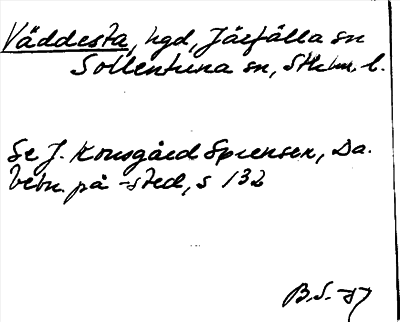 Väddesta, hgd, Järfälla sn
Sollentuna sn, Sthlm l.
Se J. Kousgård Sørensen, Da.
bebn. på -sted, s 132
B.S. -57